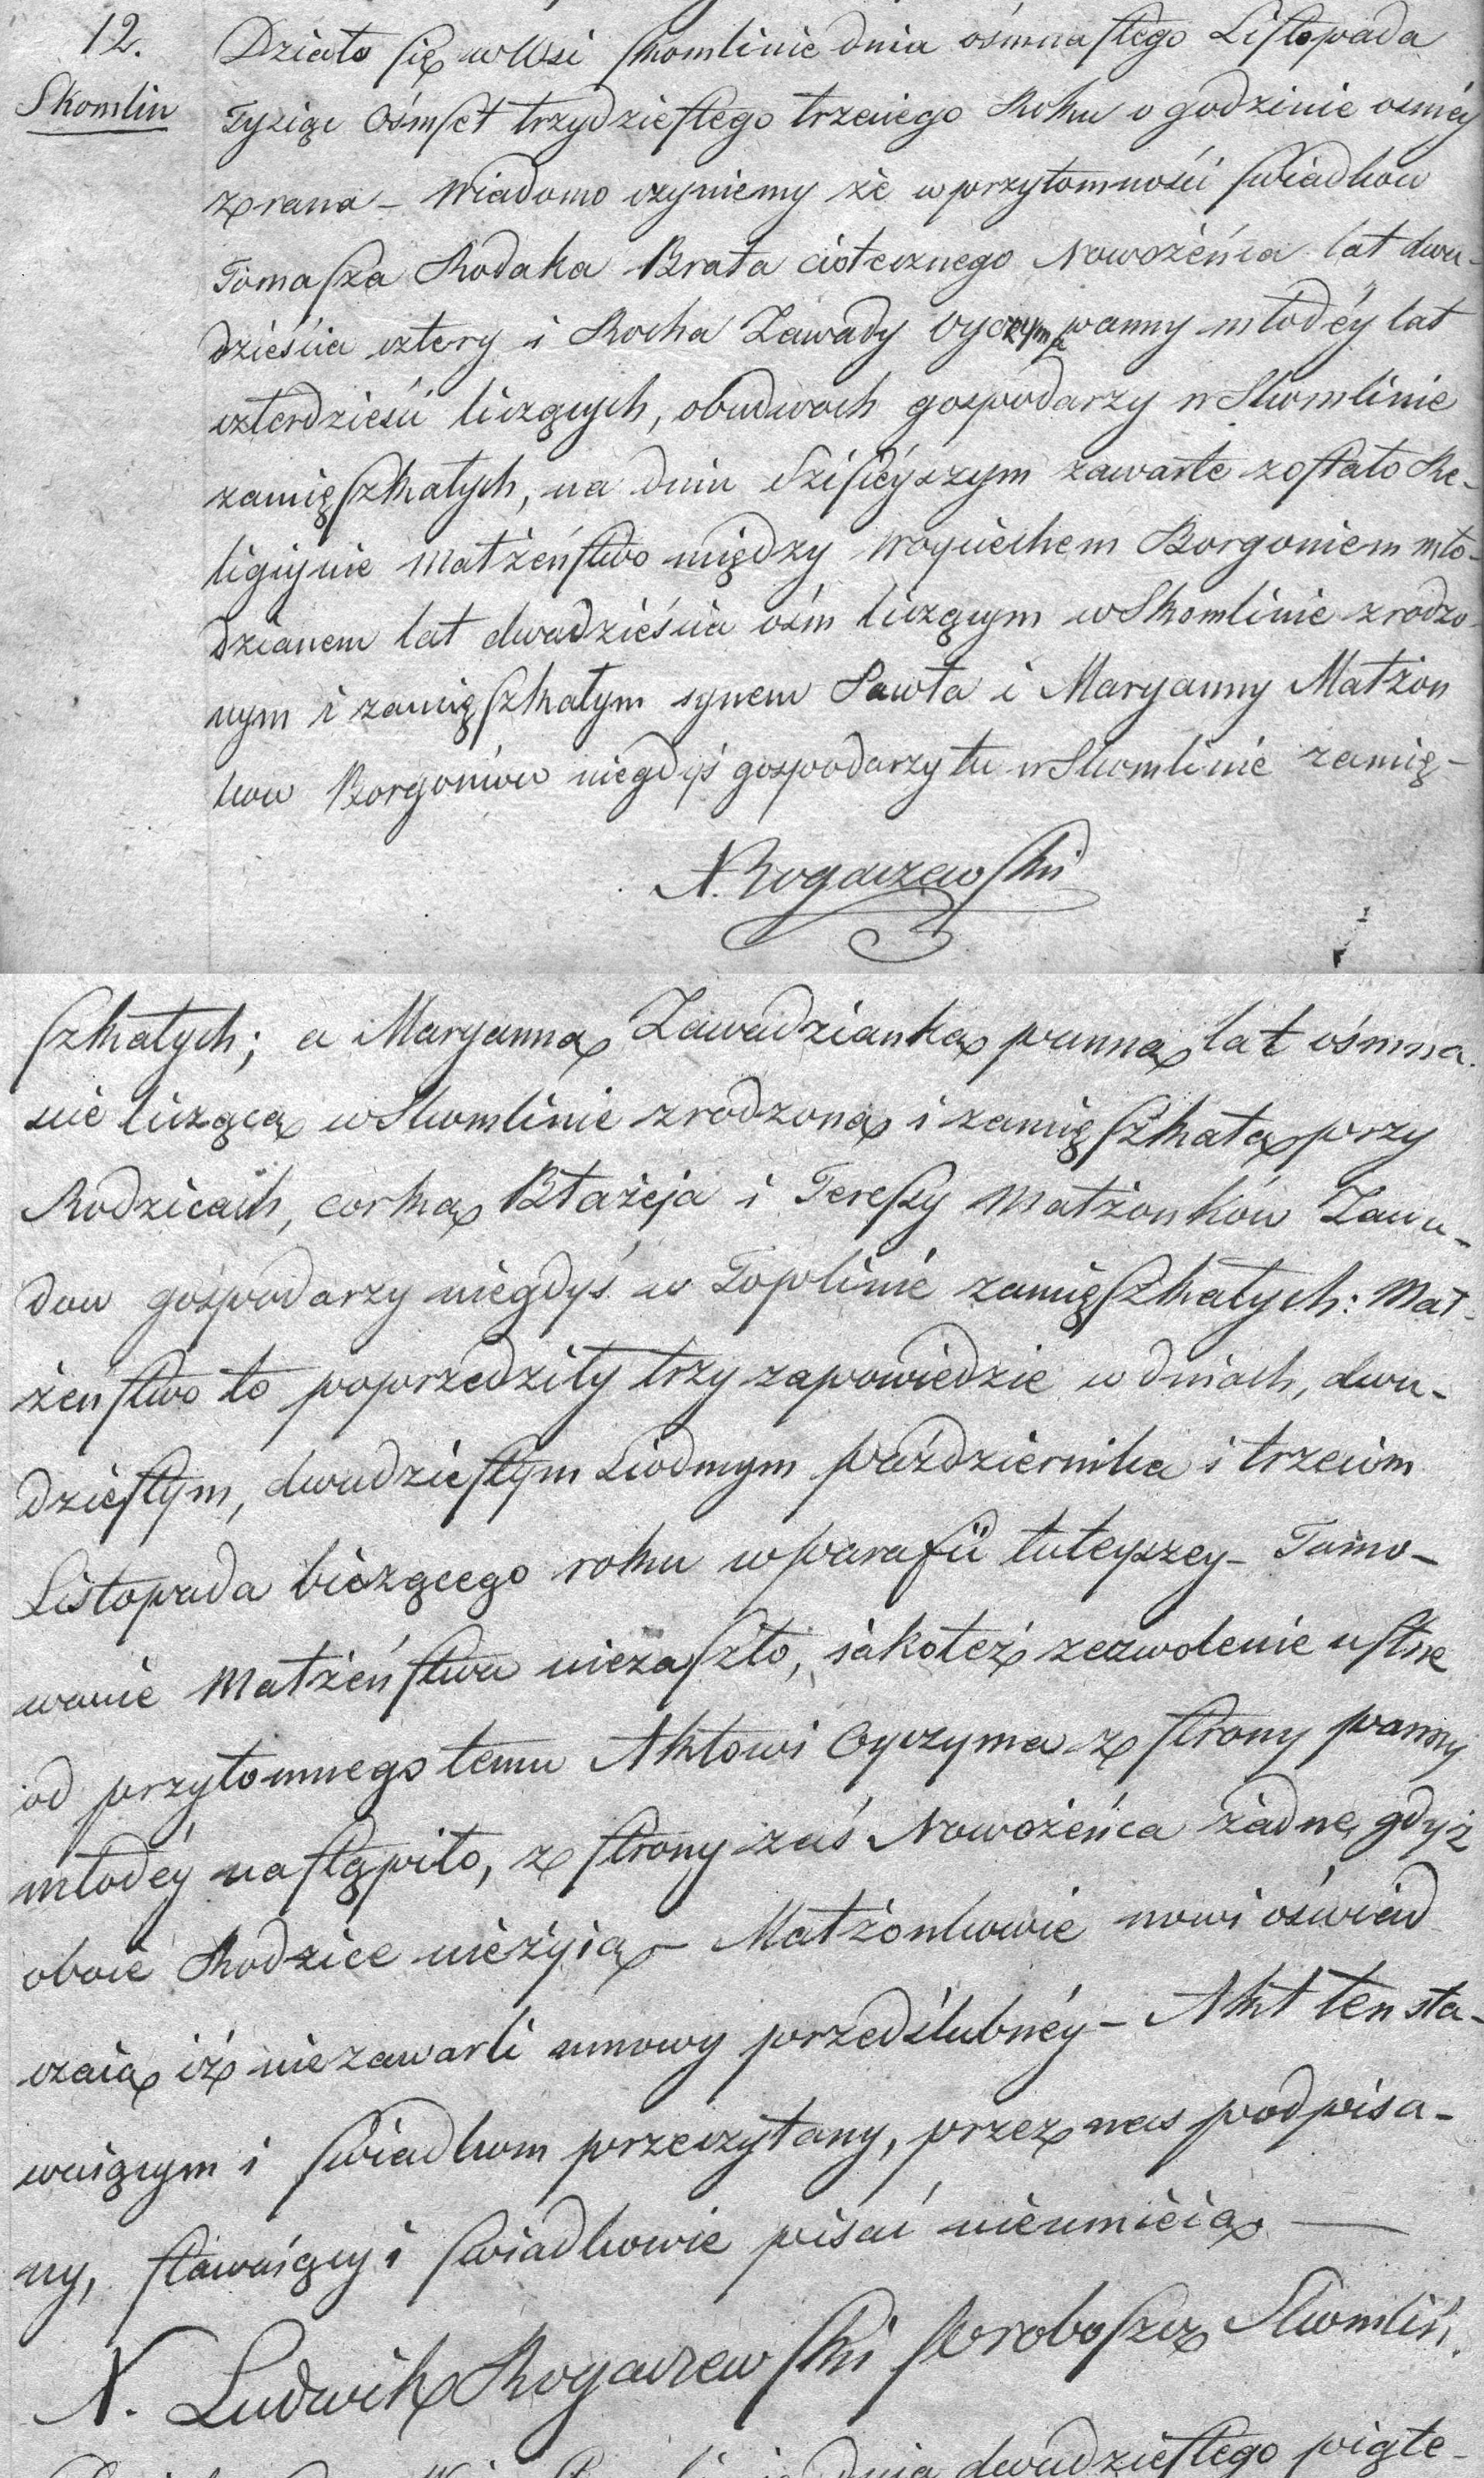 12.
Skomlin
Działo się w Wsi Skomlinie dnia ośmnastego Listopada
Tysiąc Ośmset trzydziestego trzeciego Roku o godzinie osméy
z rana – Wiadomo czyniemy że w przytomności świadków
Tomasza Rodaka Brata ciotecznego Nowożeńca lat dwu-
dzieścia cztery i Rocha Zawady oyczyma panny młodéy lat
czterdzieści liczących, obudwoch gospodarzy w Skomlinie
zamięszkałych, na dniu dzisieyszym zawarte zostało Re-
ligiynie Małżeństwo między Woyciechem Borgoniem mło-
dzianem lat dwadzieścia ośm liczącym w Skomlinie zrodzo-
nym i zamięszkałym synem Pawła i Maryanny Małżon
ków Borgoniów niegdyś gospodarzy tu w Skomlinie zamię-
N. Rogaczewski
szkałych; a Maryanną Zawadzianką panną lat ośmna
ście liczącą w Skomlinie zrodzoną i zamięszkałą przy
Rodzicach, corką Błażeja i Teressy Małżonków Zawa-
dow gospodarzy niegdyś w Toplinie zamięszkałych: Mał-
żeństwo to poprzedziły trzy zapowiedzie w dniach, dwu-
dziestym, dwudziestym siodmym października i trzecim
Listopada bieżącego roku w parafii tuteyszey – Tamo-
wanie Małżeństwa niezaszło, jakoteż zezwolenie ustne
od przytomnego temu Aktowi Oyczyma z strony panny
młodéy nastąpiło, z strony zaś Nowożeńca żadne, gdyż
oboie Rodzice nieżyią – Małżonkowie nowi oświad
czaią iż niezawarli umowy przedślubnéy – Akt ten sta-
waiącym i świadkom przeczytany, przez nas podpisa-
ny, stawaiący i świadkowie pisać nieumieią –
N. Ludwik Rogaczewski Proboszcz Skomliń.
dnia dwudziestego piąte-